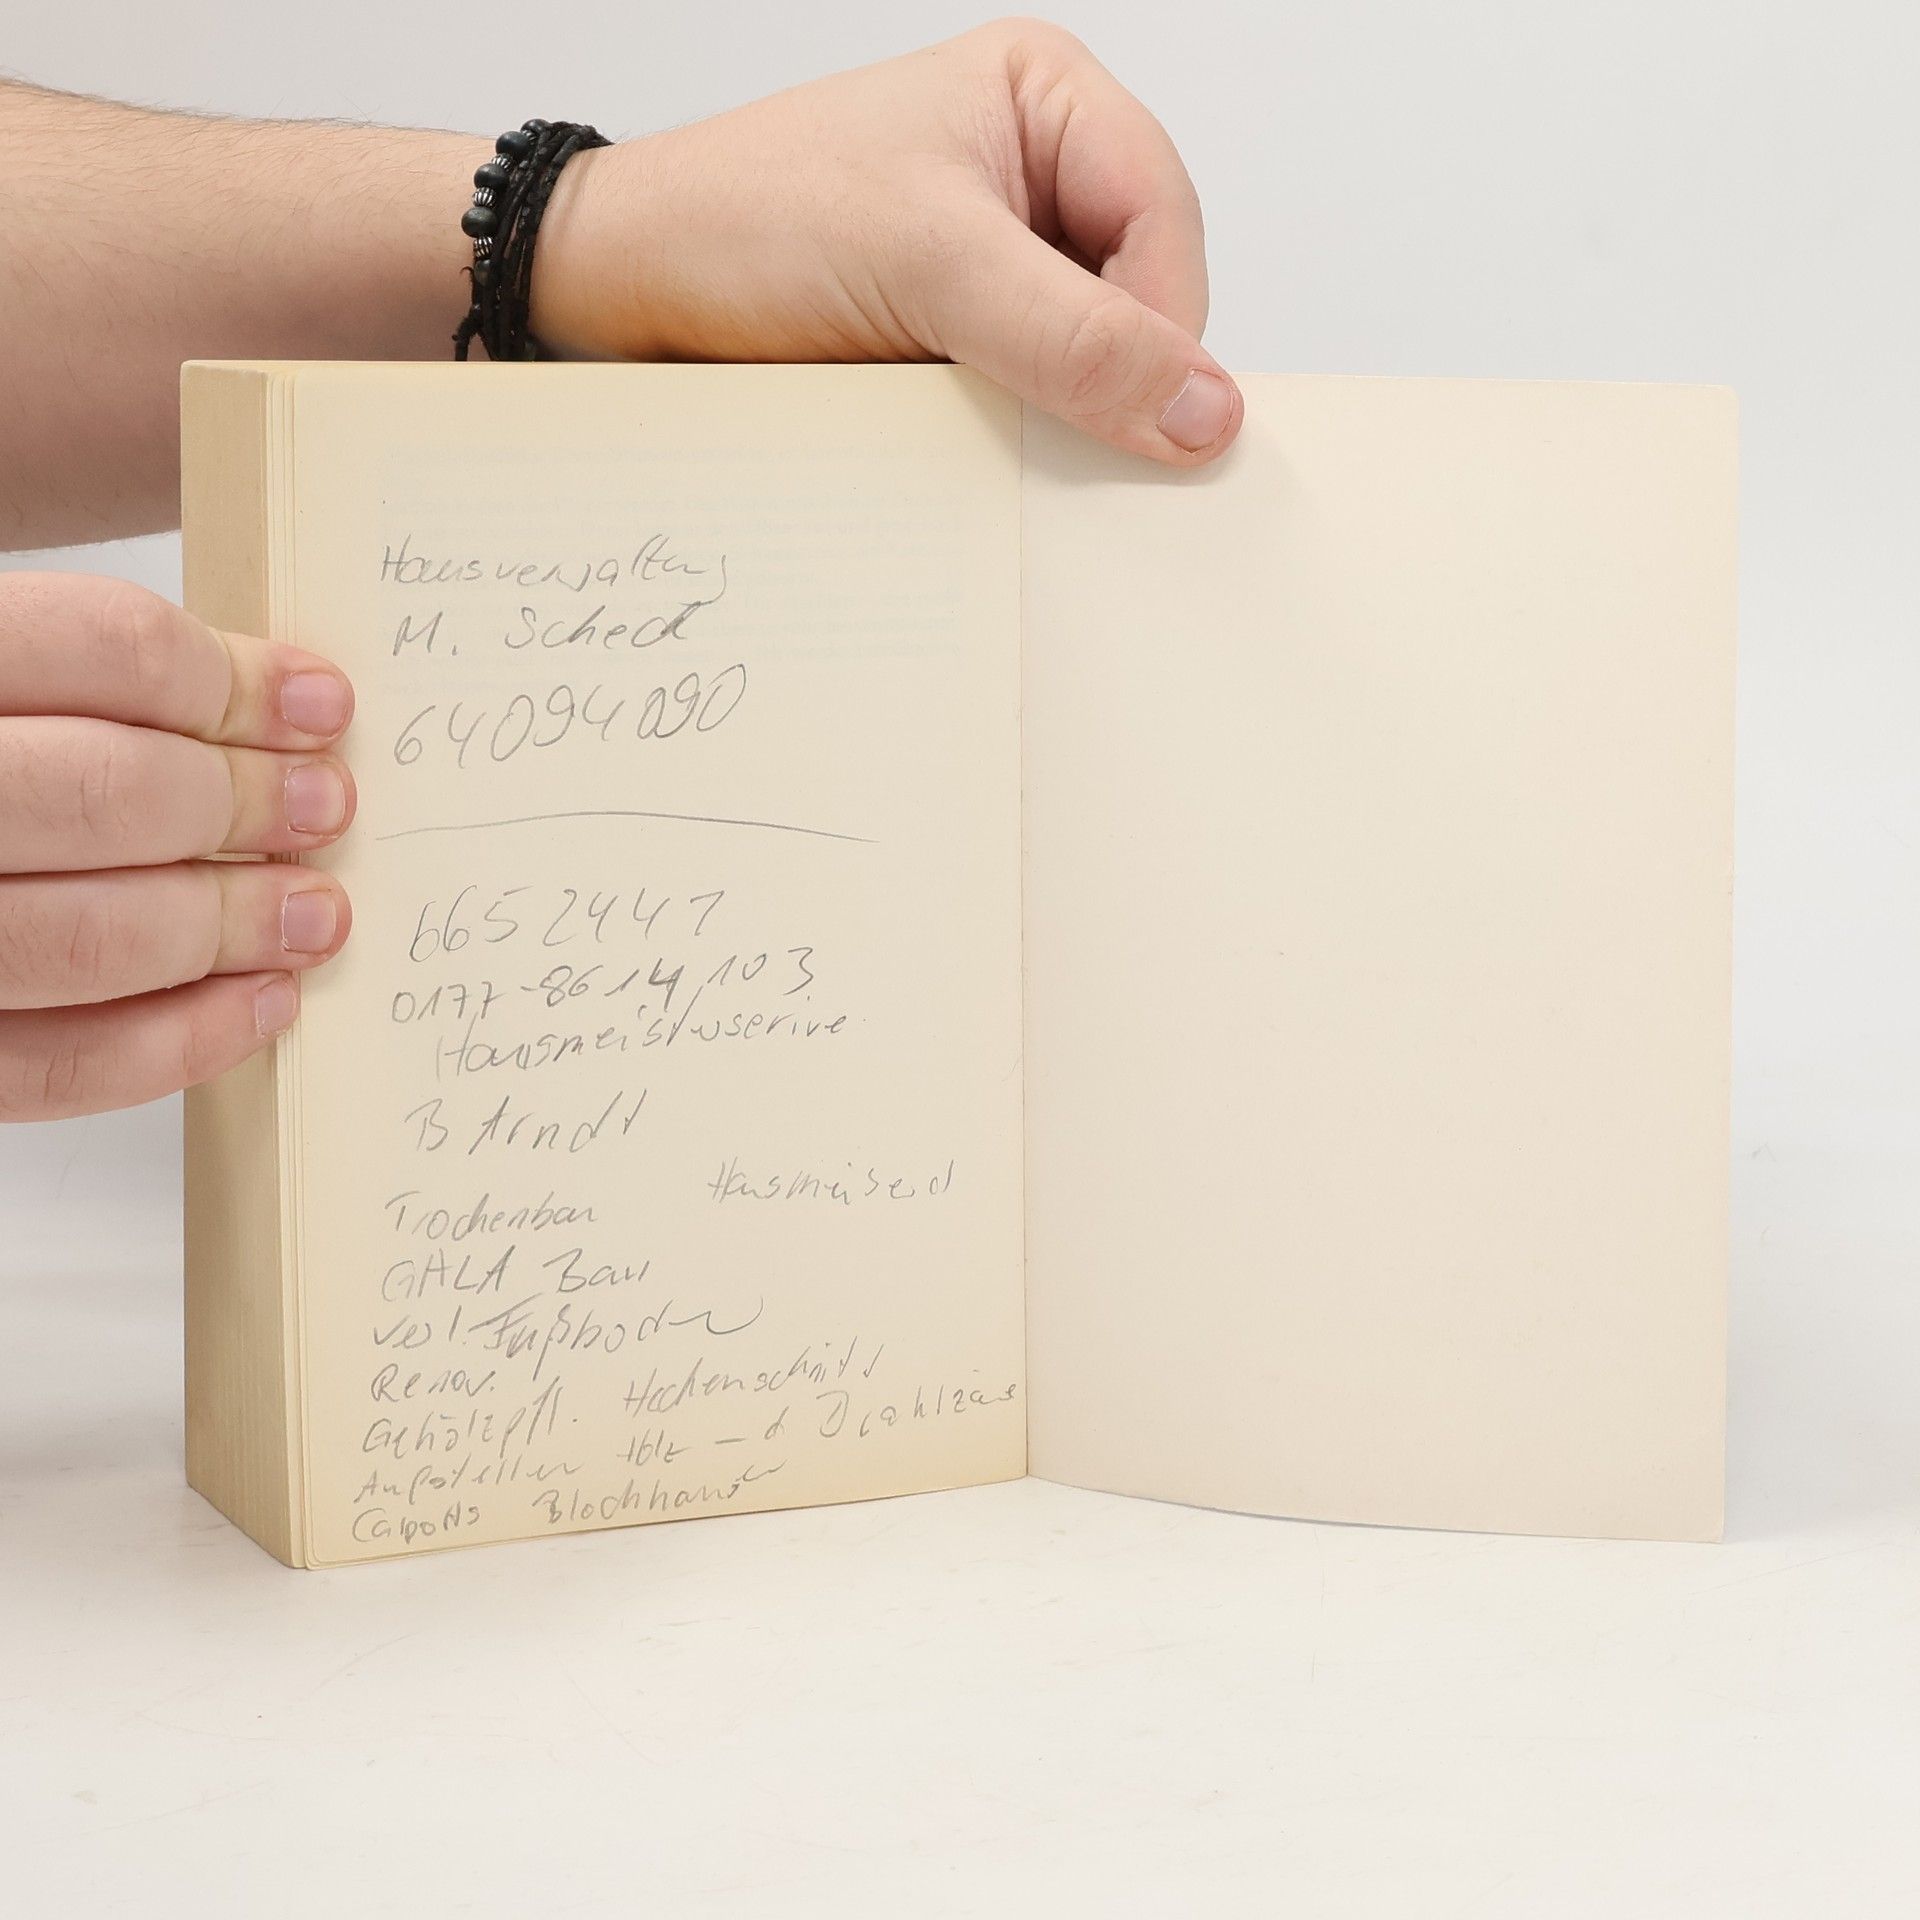 Hausverwaltung
M. Scheck
64094090
66524471
0177-8614103
Hausmeisterserive
B Arndt
Hausmeiserd
Trockenbau
GALA Bau
Verl. Fußboden
Renov.
Gehölzpfl. Heckenschnitt
Aufstellen Holz - d Drahtzäune
Carports Blockhäuser